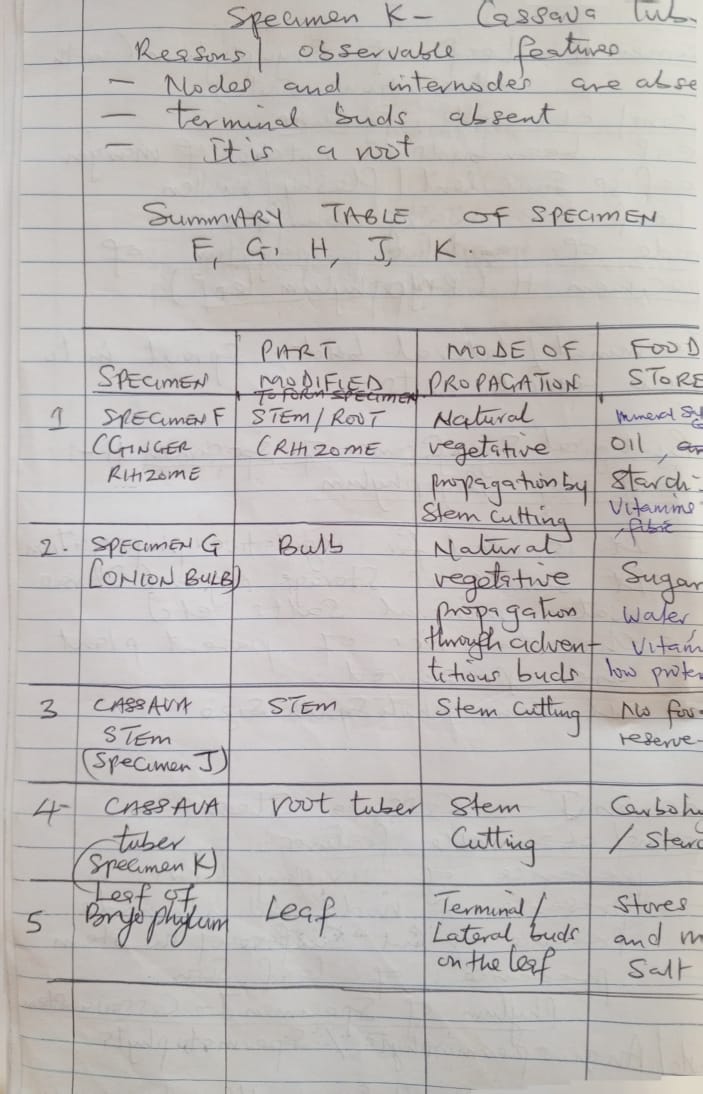 Specimen K - Cassava Tub
Reasons / observable features
- Nodes and internodes are abse
- terminal buds absent
- It is a root
SUMMARY TABLE OF SPECIMEN
F, G, H, J, K.
SPECIMEN
PART MODIFIED
TO FORM SPECIMEN
MODE OF PROPAGATION
FOOD STORE
1 SPECIMEN F
(GINGER
RHIZOME
STEM/ROOT
(RHIZOME
Natural
vegetative
propagation by
Stem cutting
mineral
oil,
Starch
Vitamins
, fibre
2. SPECIMEN G
(ONION BULB)
Bulb
Natural
vegetative
propagation
through adven-
titious buds
Sugar
Water
Vitam
low prote
3 CASSAVA
STEM
(Specimen J)
STEM
Stem Cutting
No foo
reserve
4- CASSAVA
tuber
(Specimen K)
root tuber
Stem
Cutting
Carbohy
/ Starc
5 Leaf of
Bryophylum
Leaf
Terminal/
Lateral buds
on the leaf
Stores
and m
Salt